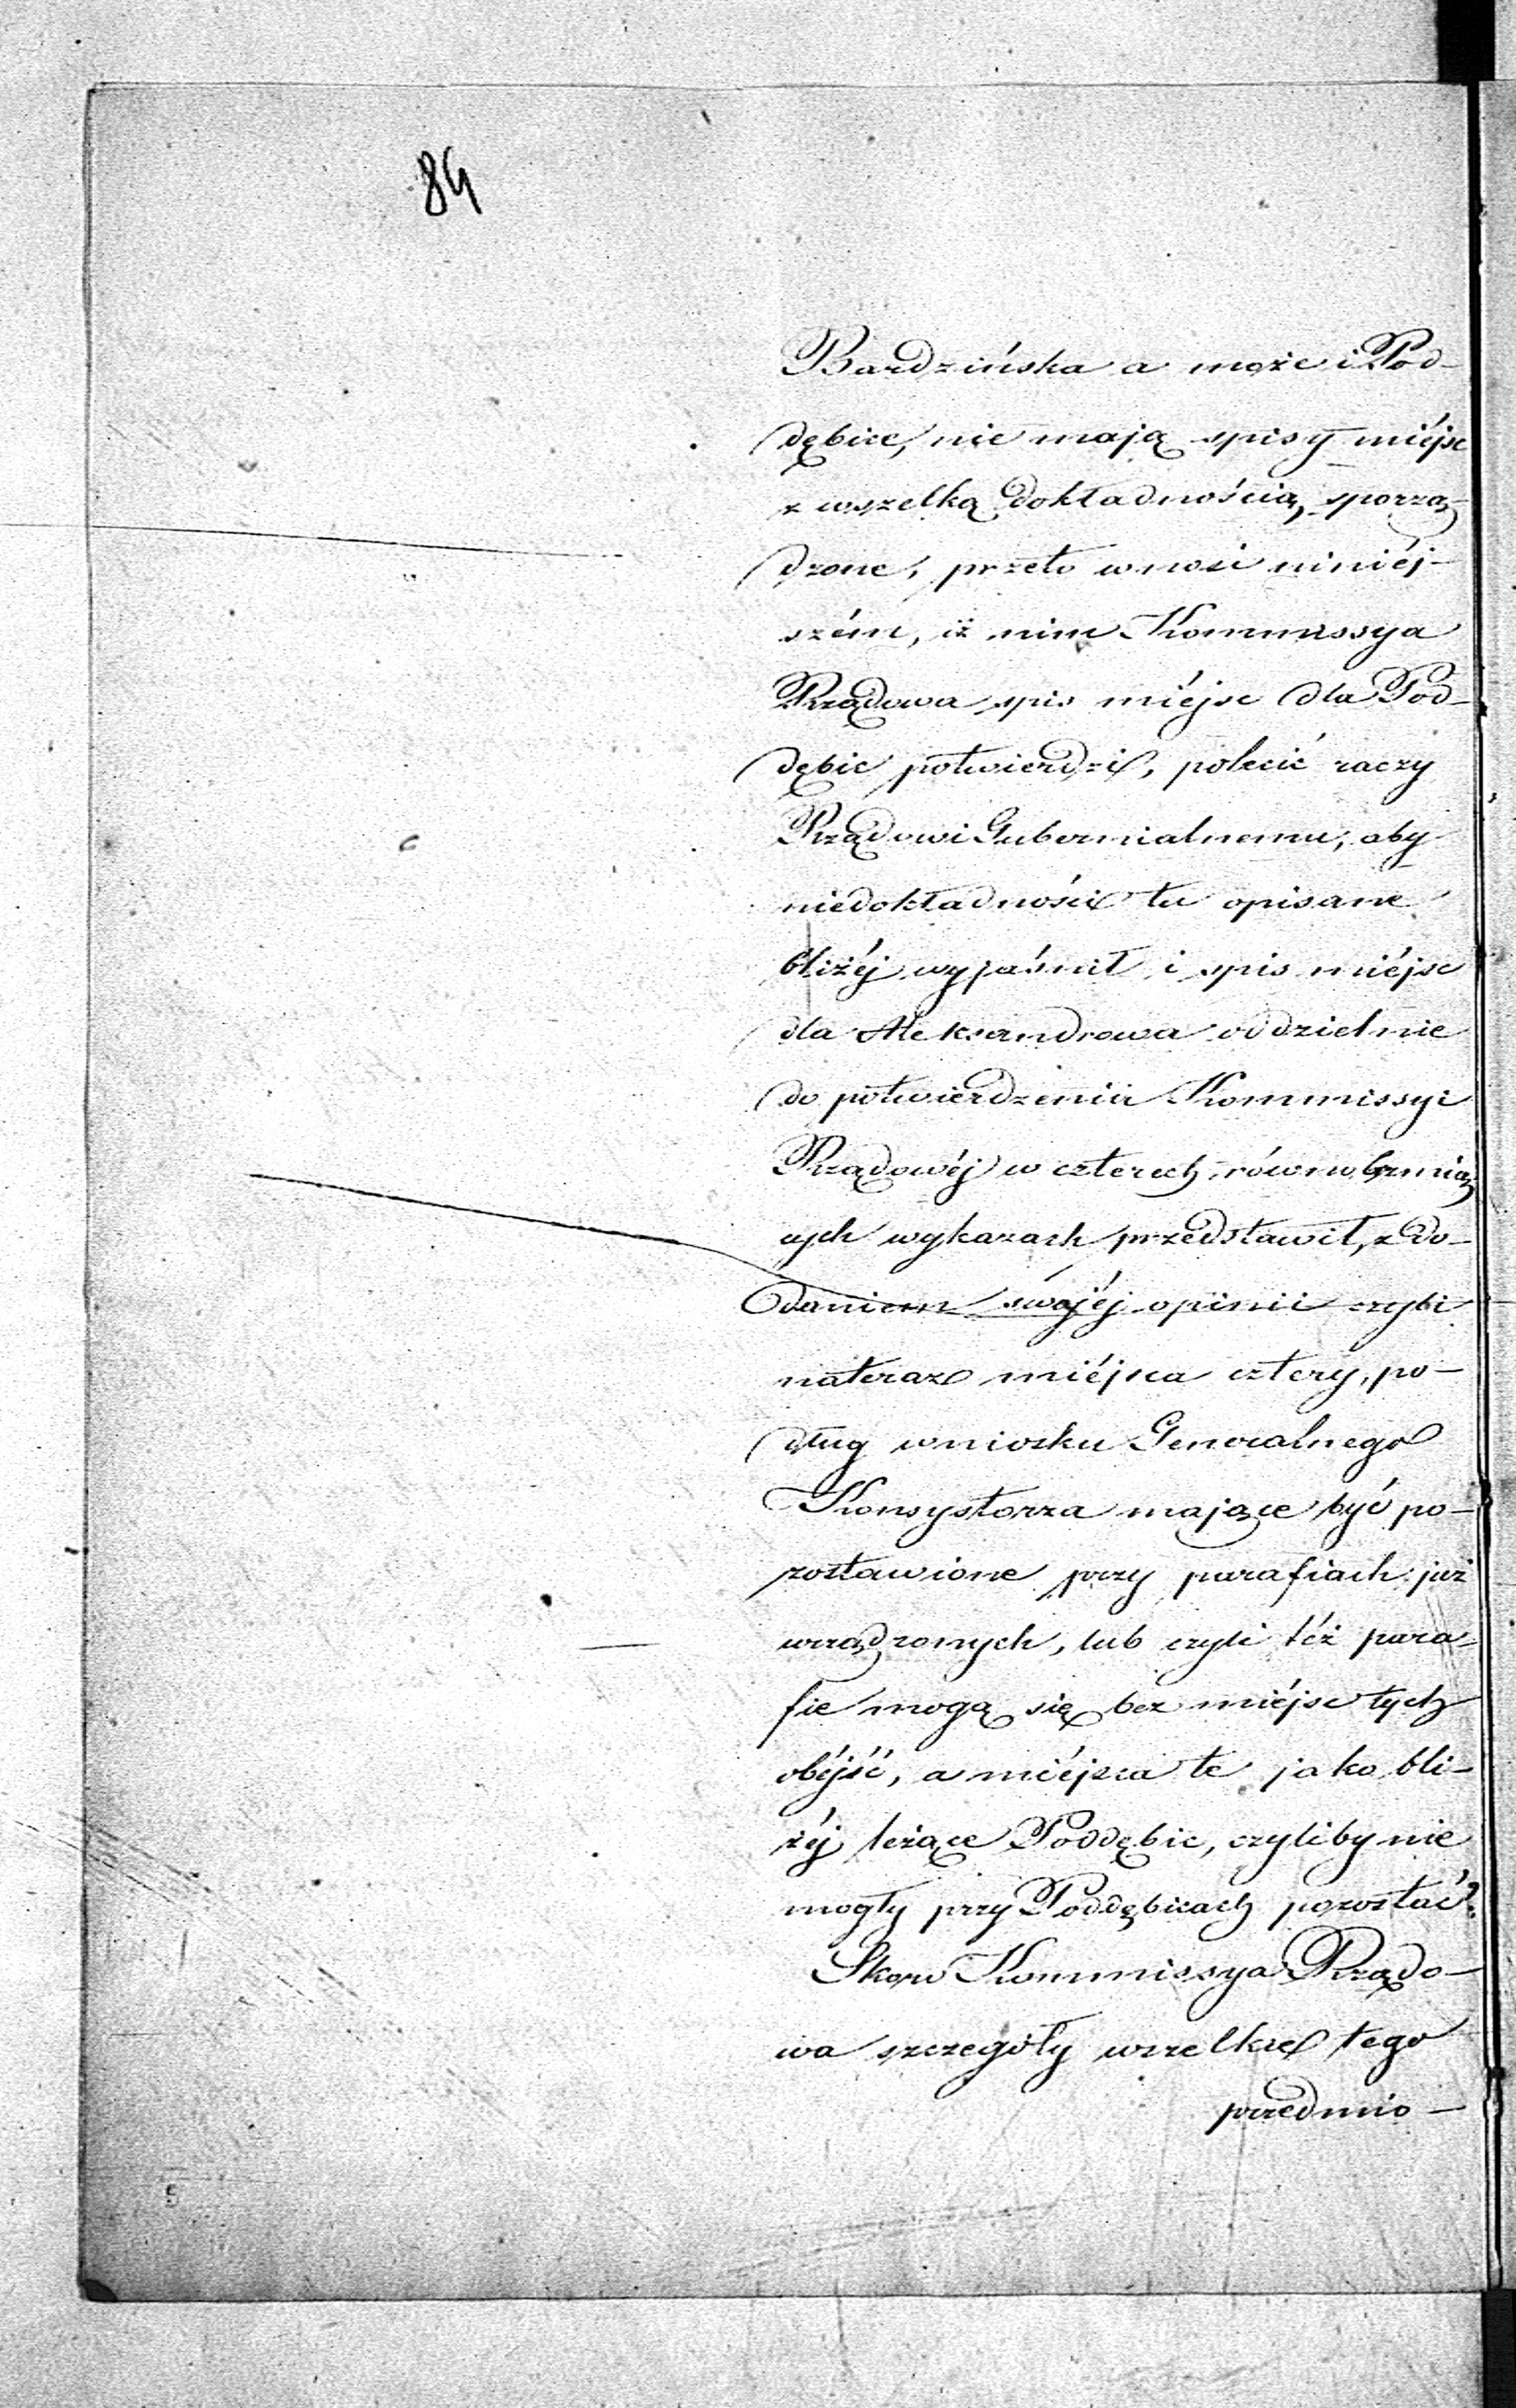 84
Bardzińska a może i Pod-
dębice, nie mają spisy miéjsc
z wszelką dokładnością sporzą-
dzone, przeto wnosi niniéj-
szém, iż nim Kommissya
Rządowa spis miéjsc dla Pod-
dębic potwierdzi, polecić raczy
Rządowi Gubernialnemu, aby
niedokładności tu opisane
bliżéj wyjaśnił i spis miéjsc
dla Aleksandrowa oddzielnie
do potwierdzenia Kommissyi
Rządowéj w czterech równobrzmią
cych wykazach przedstawił, z do-
daniem swojéj opinii czyli
nateraz miéjsca cztery, po-
dług wniosku Generalnego
Konsystorza mające być po-
zostawione przy parafiach już
urządzonych, lub czyli téż para-
fie mogą się bez miéjsc tych
obéjść, a miéjsca te jako bli-
żéj leżące Poddębic, czyliby nie
mogły przy Poddębicach pozostać?
Skoro Kommissya Rządo-
wa szczegóły wszelkie tego
przedmio-